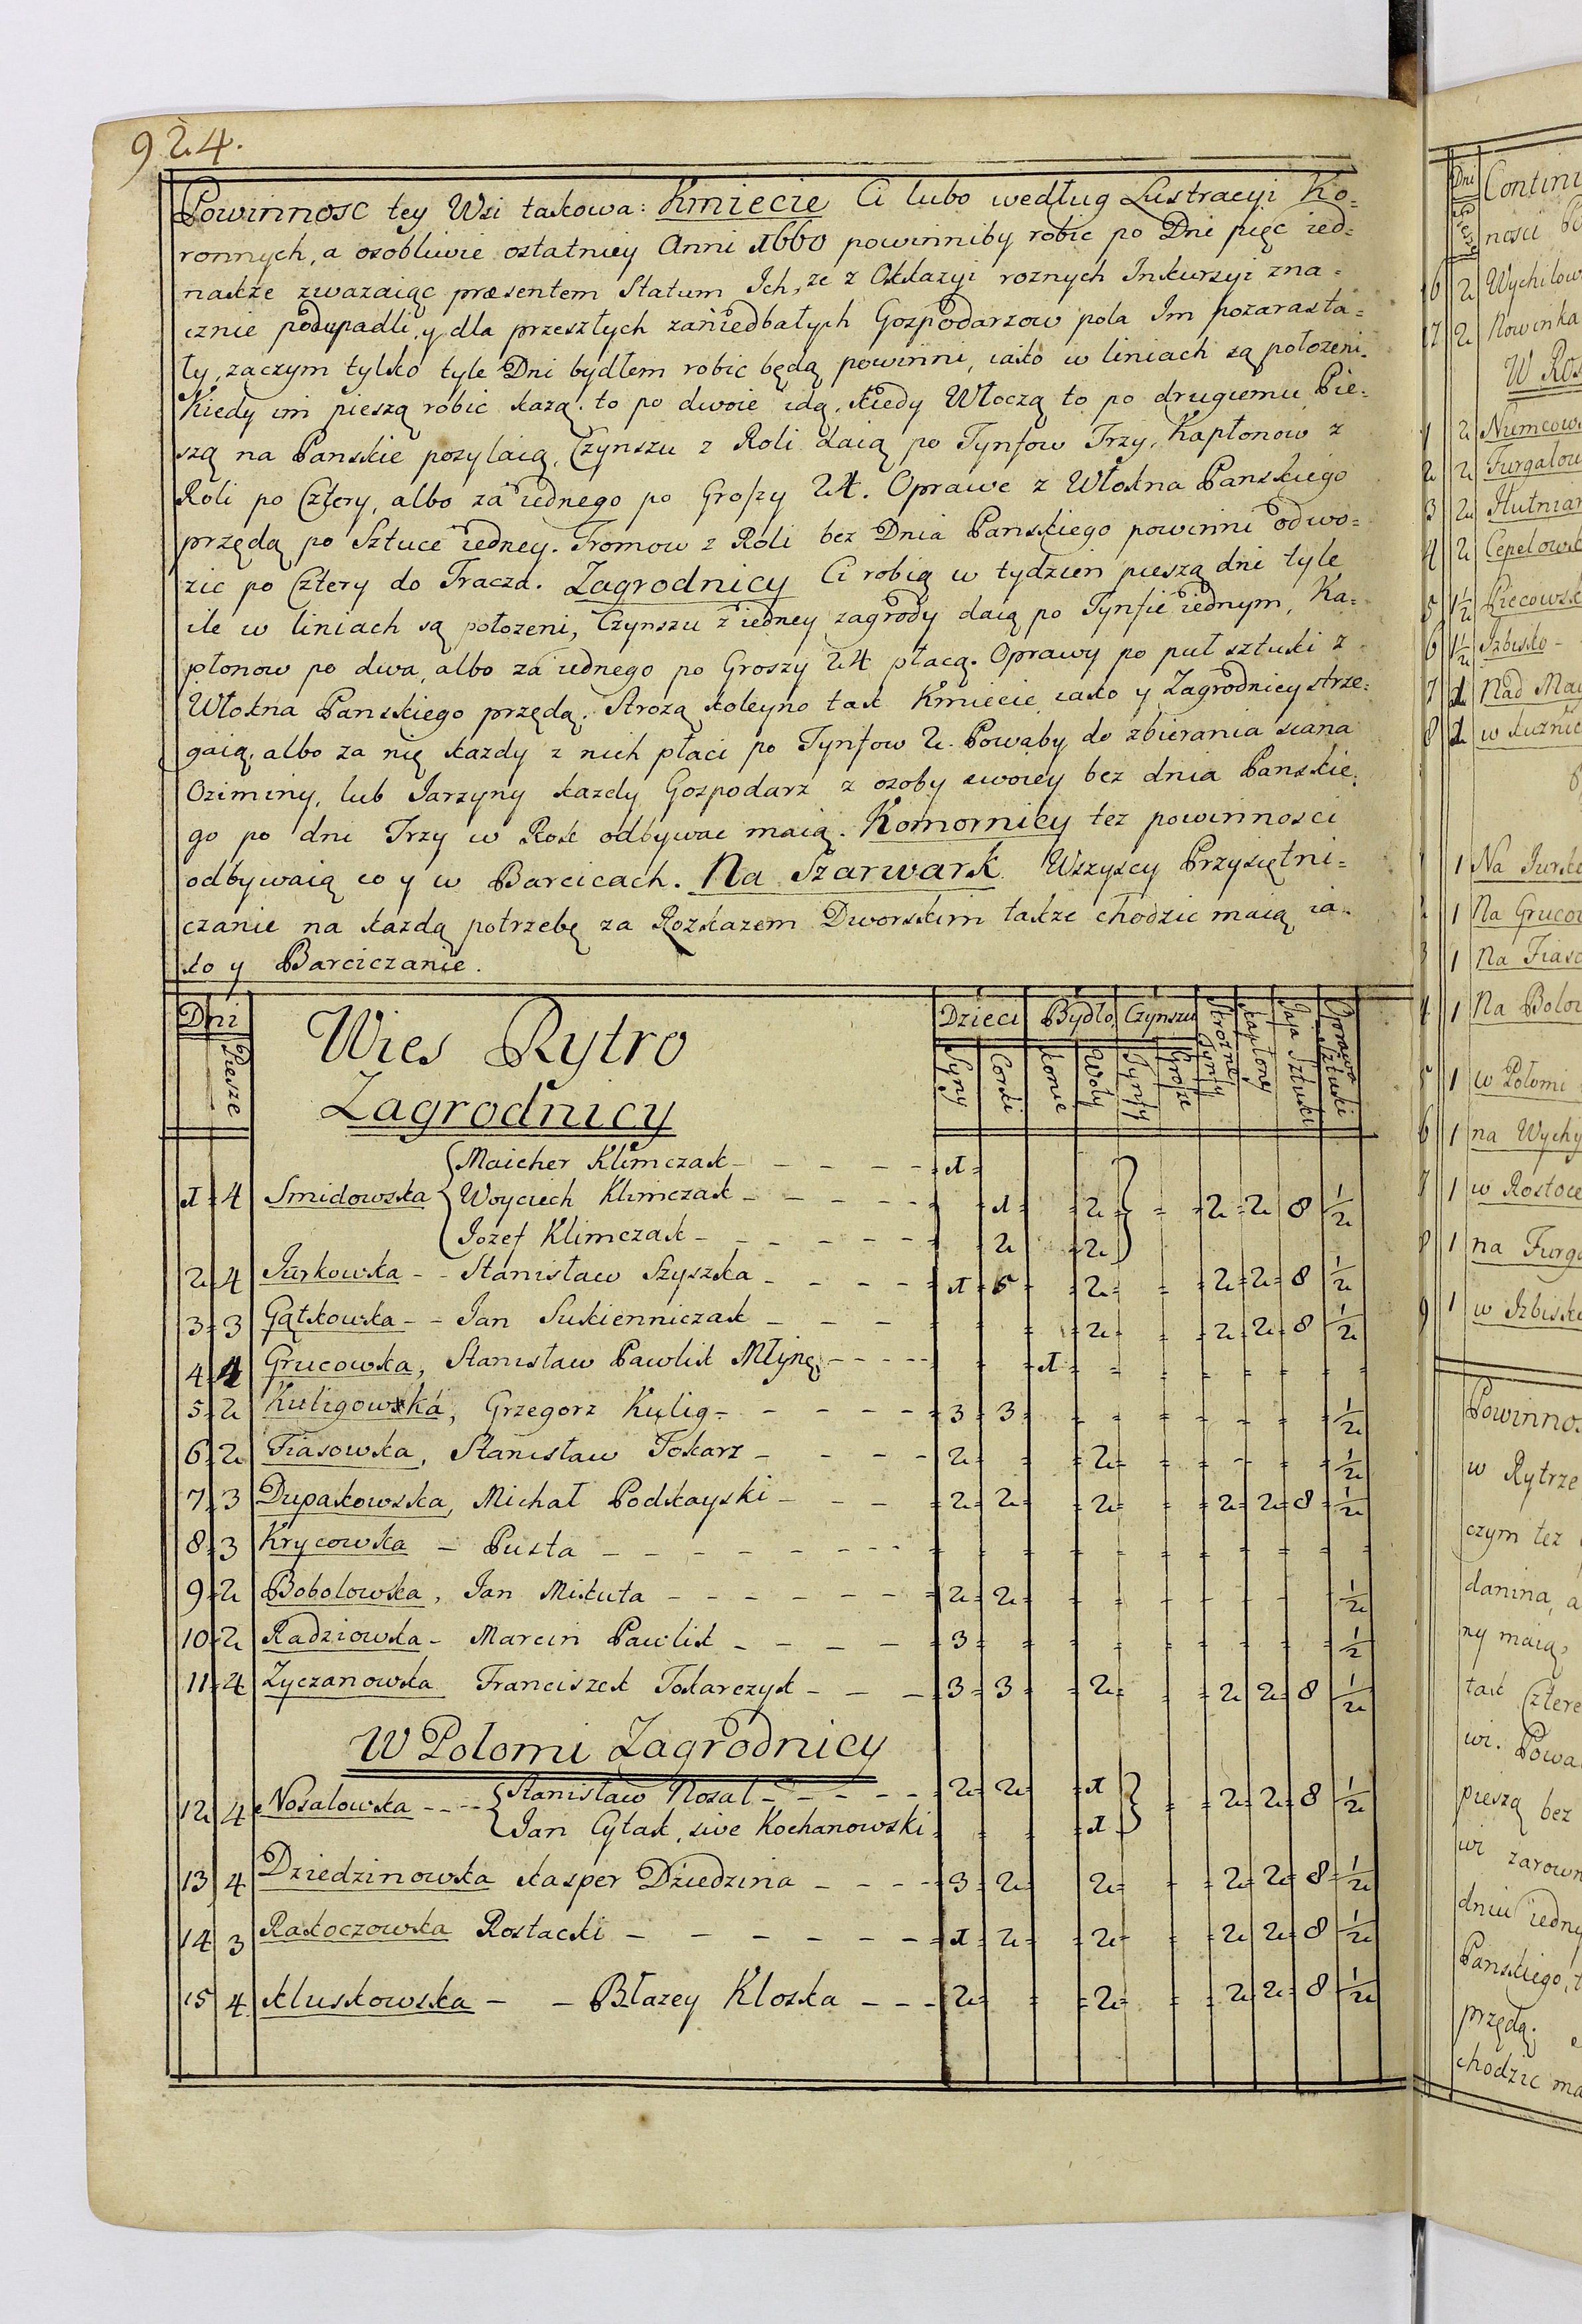 924.
Powinnosc tey Wsi takowa: Kmiecie Ci lubo według Lustracyi Ko=
ronnych, a osobliwie ostatniey Anni 1660 powinniby robic po Dni pięc ied=
nakze zwazaiąc præsentem Statum Ich, ze z Okkazyi roznych Inkursyi zna=
cznie podupadli, y dla przeszłych zaniedbałych Gospodarzow pola Im pozarasta=
ły, zaczym tylko tyle Dni bydłem robic będą powinni, iako w liniach są połozeni.
Kiedy im pieszą robic kazą. to po dwoie idą, kiedy Włoczą to po drugiemu Pie=
szą na Panskie posylaią, Czynszu z Roli daią po Tynfow Trzy, Kapłonow z
Roli po Cztery, albo za iednego po Groszy 24. Oprawe z Włokna Panskiego
przędą po Sztuce iedney. Tromow z Roli bez Dnia Panskiego powinni odwo=
zic po Cztery do Tracza. Zagrodnicy Ci robią w tydzien pieszą dni tyle
ile w liniach są połozeni, Czynszu z iedney zagrody daią po Tynfie iednym, Ka=
płonow po dwa, albo za iednego po Groszy 24 płacą. Oprawy po puł sztuki z
Włokna Panskiego przędą. Strozą koleyno tak Kmiecie iako y Zagrodnicy strze=
gaią, albo za nię kazdy z nich płaci po Tynfow 2. Powaby do zbierania siana
Oziminy, lub Jarzyny kazdy Gospodarz z osoby swoiey bez dnia Panskie=
go po dni Trzy w Rok odbywac maią. Komornicy tez powinnosci
odbywaią co y w Barcicach. Na Szarwark Wszyscy Przysietni=
czanie na kazdą potrzebę za Rozkazem Dworskim takze chodzic maią ia=
ko y Barciczanie.
Dni Wies Rytro Dzieci Bydło Czynszu Strozne Tynfy Kapłony Jaja Sztuki Oprawa Sztuki
Piesze Zagrodnicy Syny Corki Konie Woły Tynfy Grosze
Maicher Klimczak - - - - 1
1 4 Smidowska Woyciech Klimczak - - - - - 1 2 2 2 8 1/2
Jozef Klimczak - - - - - - 2 2
2 4 Jurkowska - - Stanisław Szyszka - - - - 1 5 2 2 2 8 1/2
3 3 Gątkowska - - Jan Sukienniczak - - - 2 2 2 8 1/2
4 4 Grucowska, Stanisław Pawlik Młyne - - - - 1
5 2 Kuligowska, Grzegorz Kulig - - - - - 3 3 1/2
6 2 Fiasowska, Stanisław Tokarz - - - - 2 2 1/2
7 3 Dupakowska, Michał Podkayski - - - 2 2 2 2 2 8 1/2
8 3 Krycowska - Pusta - - - - - - - -
9 2 Bobolowska, Jan Mikuta - - - - - - 2 2 1/2
10 2 Radziowska - Marcin Pawlik - - - - 3 1/2
11 4 Zyczanowska Franciszek Tokarczyk - - - 3 3 2 2 2 8 1/2
W Polomi Zagrodnicy
12 4 Nosalowska - - - - Stanisław Nosal - - - - - 2 2 1 2 2 8 1/2
Jan Cytak, sive Kochanowski 1
13 4 Dziedzinowska Kasper Dziedzina - - - - 3 2 2 2 2 8 1/2
14 3 Rakoczowska Rostacki - - - - - - 1 2 2 2 2 8 1/2
15 4 Kluskowska - - Błazey Kloska - - - 2 2 2 2 8 1/2
Dni Contin
Piesze
16 2 Wychilow
17 2 Nowinka
W Ros
1 2 Numcow
2 2 Furgalow
3 2 Hutniar
4 2 Cepelowsk
5 1 1/2 Piecowsk
6 1 1/2 Izbisko -
7 1 Nad May
8 1
1 Na Jurk
1 Na Grucow
1 Na Fiaso
4 1 Na Bolow
5 1 w Połomi
6 1 na Wychy
7 1 w Rostoce
8 1 na Furga
9 1 w Izbisk
Powinnos
w Rytrze
czym tez
danina, a
ny maią,
tak Cztere
wi. Powa
pieszą bez
wi zarown
dniu iedny
Panskiego, t
przędą.
chodzic ma